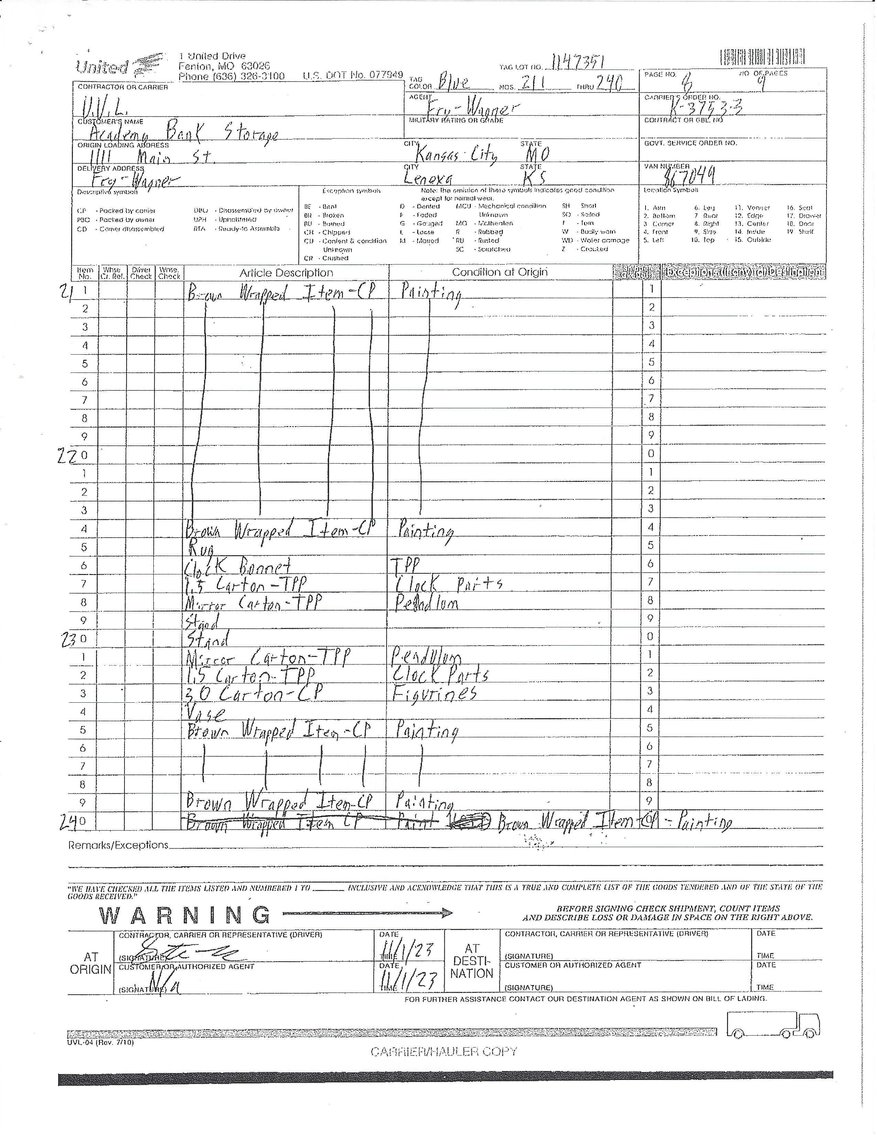 United
1 United Drive
Fenton, MO 63026
Phone (636) 326-3100 U.S. DOT No. 077949
TAG LOT NO. 1147351
TAG COLOR Blue NOS. 211 THRU 240
PAGE NO. 8 NO. OF PAGES 9
CONTRACTOR OR CARRIER AGENT CARRIER'S ORDER NO.
U.V.L. Fry-Wagner K-3753-3
CUSTOMER'S NAME MILITARY RATING OR GRADE CONTRACT OR GBL NO.
Academy Bank Storage
ORIGIN LOADING ADDRESS CITY STATE GOVT. SERVICE ORDER NO.
1111 Main St. Kansas City MO
DELIVERY ADDRESS CITY STATE VAN NUMBER
Fry-Wagner Lenexa KS 867049
Descriptive symbols Exception symbols Note: the omission of these symbols indicates good condition except for normal wear. Location Symbols
CP - Packed by carrier DBO - Disassembled by owner BE - Bent D - Dented MCU - Mechanical condition Unknown SH - Short 1. Arm 6. Leg 11. Veneer 16. Seat
PBO - Packed by owner BR - Broken F - Faded SO - Soiled 2. Bottom 7. Rear 12. Edge 17. Drawer
CD - Carrier disassembled BU - Burned G - Gouged T - Torn 3. Corner 8. Right 13. Center 18. Door
CH - Chipped L - Loose R - Rubbed W - Badly worn 4. Front 9. Side 14. Inside 19. Shelf
CU - Content & condition Unknown M - Marred RU - Rusted WD - Water damage 5. Left 10. Top 15. Outside
CR - Crushed SC - Scratched Z - Cracked
Item No. Whse. Cr. Ref. Driver Check Whse. Check Article Description Condition at Origin
21 1 Brown Wrapped Item-CP Painting 1
2 2
3 3
4 4
5 5
6 6
7 7
8 8
9 9
22 0 0
1 1
2 2
3 3
4 Brown Wrapped Item-CP Painting 4
5 Rug 5
6 Clock Bonnet TPP 6
7 1.5 Carton-TPP Clock Parts 7
8 Mirror Carton-TPP Pendlum 8
9 Stand 9
23 0 Stand 0
1 Mirror Carton-TPP Pendulum 1
2 1.5 Carton-TPP Clock Parts 2
3 3.0 Carton-CP Figurines 3
4 Vase 4
5 Brown Wrapped Item-CP Painting 5
6 6
7 7
8 8
9 Brown Wrapped Item-CP Painting 9
24 0 Brown Wrapped Item CP Paint Brown Wrapped Item-CP - Painting
Remarks/Exceptions
"WE HAVE CHECKED ALL THE ITEMS LISTED AND NUMBERED 1 TO INCLUSIVE AND ACKNOWLEDGE THAT THIS IS A TRUE AND COMPLETE LIST OF THE GOODS TENDERED AND OF THE STATE OF THE
GOODS RECEIVED."
WARNING
BEFORE SIGNING CHECK SHIPMENT, COUNT ITEMS
AND DESCRIBE LOSS OR DAMAGE IN SPACE ON THE RIGHT ABOVE.
AT ORIGIN
CONTRACTOR, CARRIER OR REPRESENTATIVE (DRIVER) DATE
(SIGNATURE) TIME 11/1/23
CUSTOMER OR AUTHORIZED AGENT DATE
(SIGNATURE) N/a TIME 11/1/23
AT DESTI-NATION
CONTRACTOR, CARRIER OR REPRESENTATIVE (DRIVER) DATE
(SIGNATURE) TIME
CUSTOMER OR AUTHORIZED AGENT DATE
(SIGNATURE) TIME
FOR FURTHER ASSISTANCE CONTACT OUR DESTINATION AGENT AS SHOWN ON BILL OF LADING.
UVL-04 (Rev. 7/10)
CARRIER/HAULER COPY